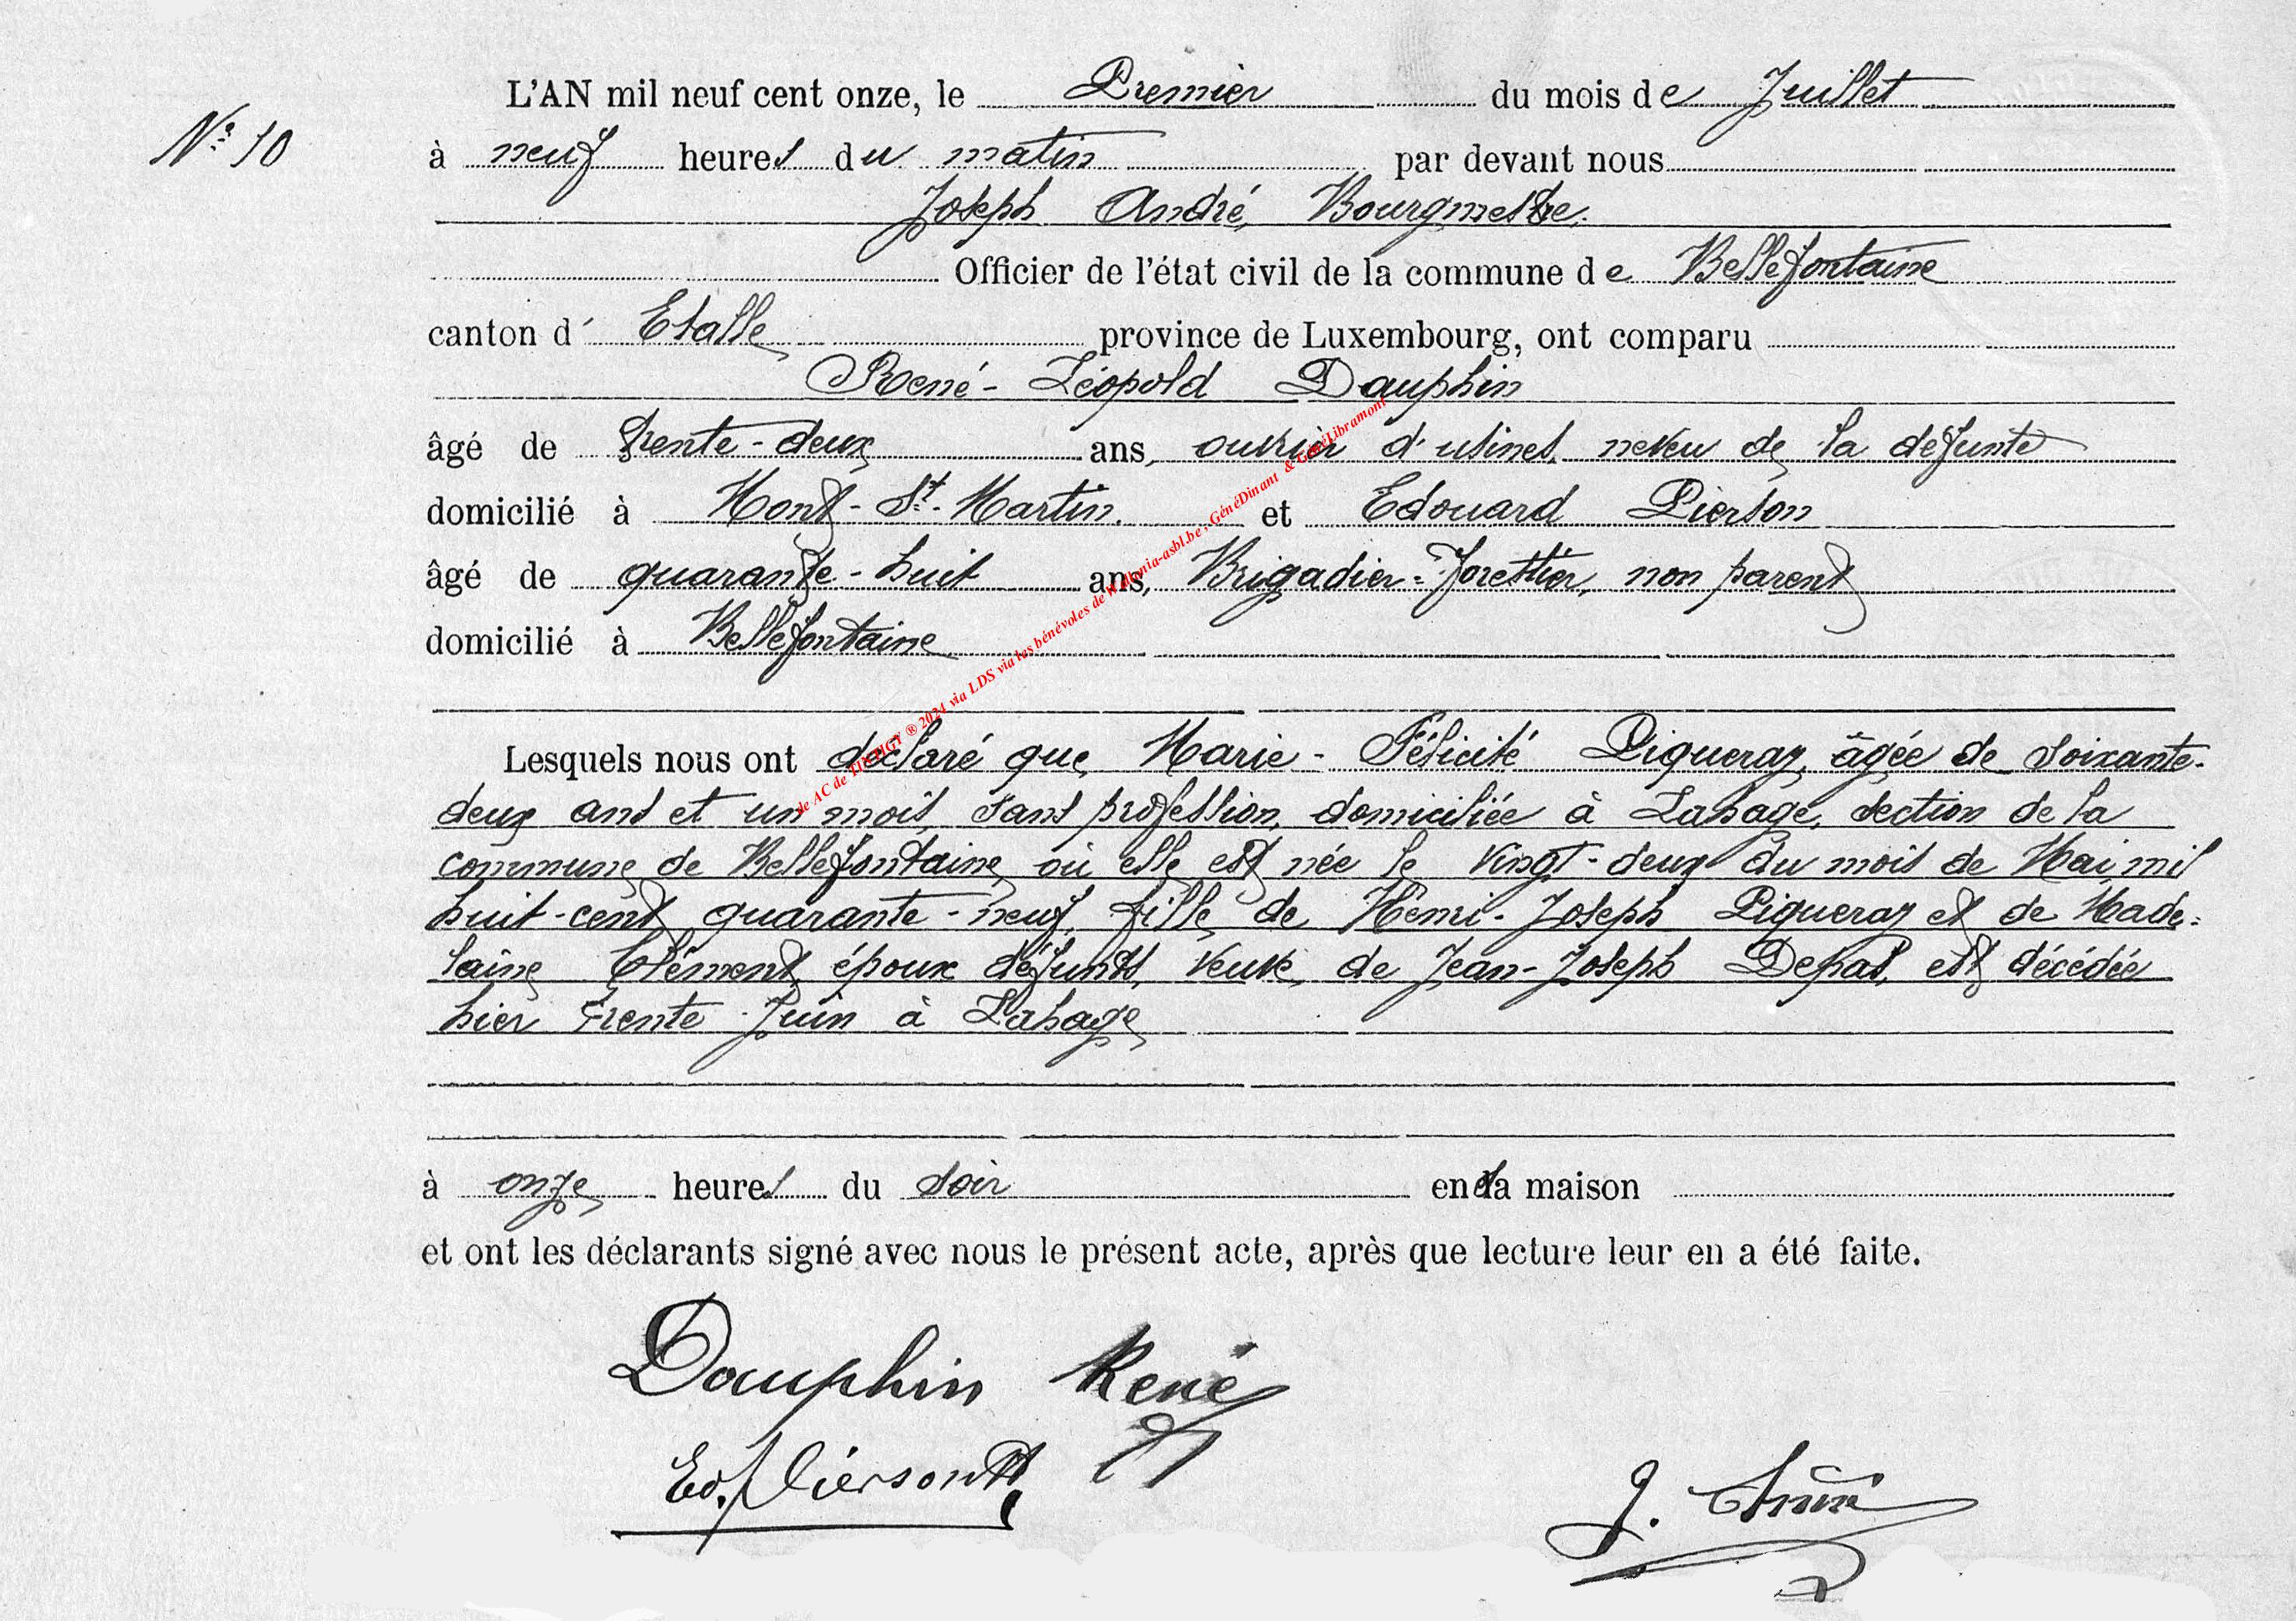 L'AN mil neuf cent onze, le Premier du mois de Juillet
N° 10
à neuf heures du matin par devant nous
Joseph André, Bourgmestre.
Officier de l'état civil de la commune de Bellefontaine
canton d' Etalle province de Luxembourg, ont comparu
René-Léopold Dauphin
âgé de trente-deux ans, ouvrier d'usines, neveu de la défunte
domicilié à Mont-St-Martin. et Edouard Pierson
âgé de quarante-huit ans, Brigadier-forestier, non parent
domicilié à Bellefontaine
Lesquels nous ont déclaré que Marie-Félicité Piqueray, âgée de soixante-
deux ans et un mois, sans profession, domiciliée à Lahage, section de la
commune de Bellefontaine où elle est née le vingt-deux du mois de Mai mil
huit-cent quarante-neuf, fille de Henri-Joseph Piqueray et de Made-
laine Clément, époux défunts, veuve de Jean-Joseph Depas, est décédée
hier trente Juin à Lahage
à onze heures du soir en sa maison
et ont les déclarants signé avec nous le présent acte, après que lecture leur en a été faite.
Dauphin René
Ed. Pierson
J. André
de AC de TINTIGY ® 2024 via LDS via les bénévoles de Wallonia-asbl.be, GénéDinant & GénéLibramont